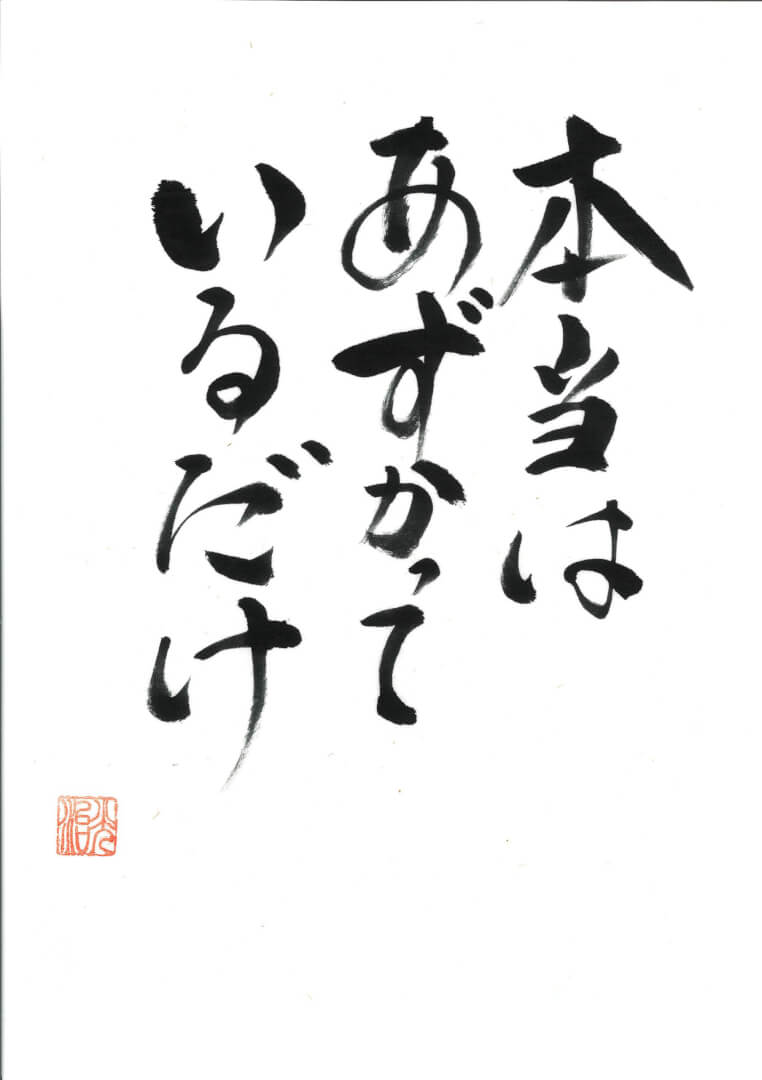 本当は
あずかって
いるだけ